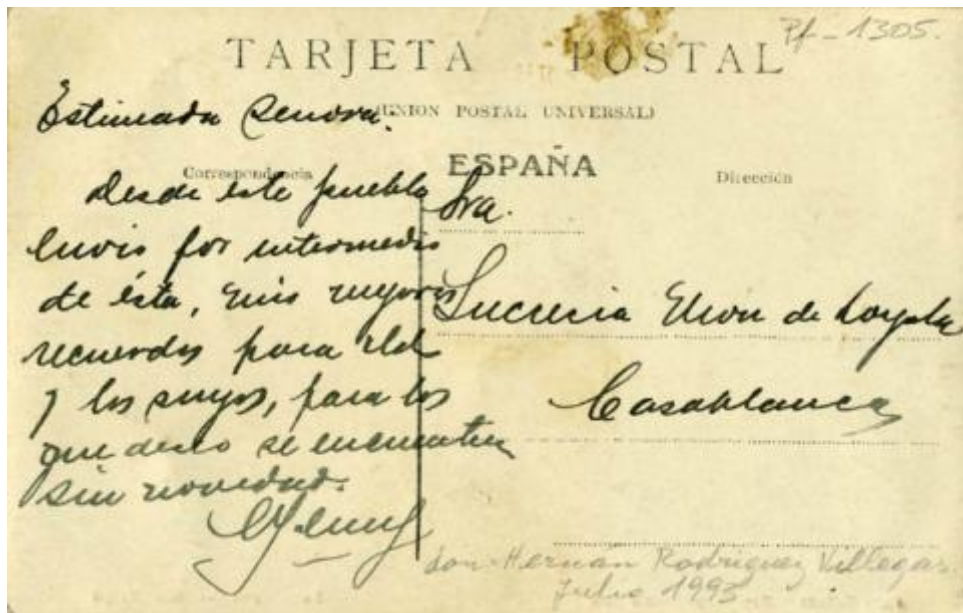 Pf-1305.
TARJETA POSTAL
(UNION POSTAL UNIVERSAL)
ESPAÑA
Correspondencia
Dirección
Estimada Señora.
Desde este pueblo
envio por intermedio
de ésta, mis mejores
recuerdos para Ud
y los suyos, para los
que deseo se encuentren
sin novedad.
Sra.
Lucrecia de Loyola
Casablanca
don Hernán Rodríguez Villegas.
Julio 1995